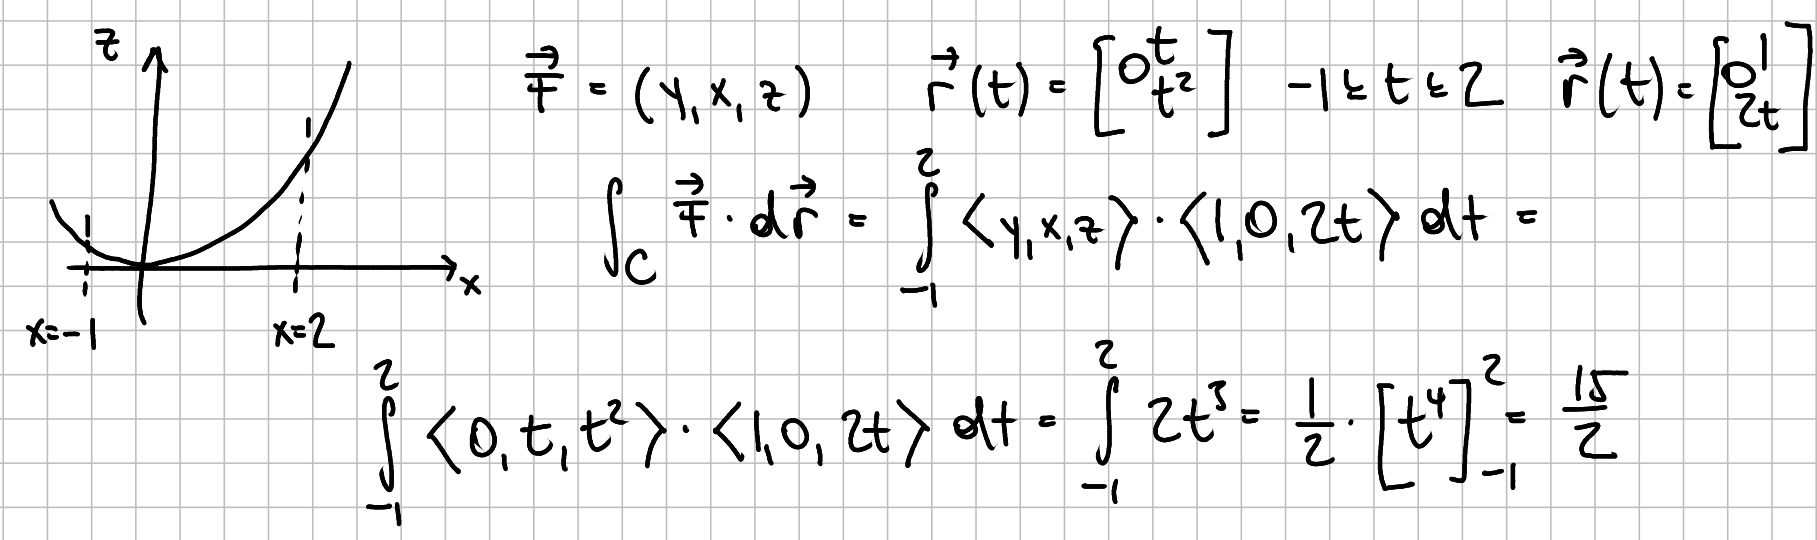 z
F⃗ = (y, x, z)   r⃗(t) = [t 0 t²]   -1 ≤ t ≤ 2   r⃗(t) = [1 0 2t]
∫_C F⃗ · dr⃗ = ∫_{-1}^{2} ⟨y, x, z⟩ · ⟨1, 0, 2t⟩ dt =
x
x=-1   x=2
∫_{-1}^{2} ⟨0, t, t²⟩ · ⟨1, 0, 2t⟩ dt = ∫_{-1}^{2} 2t³ = 1/2 · [t⁴]_{-1}^{2} = 15/2